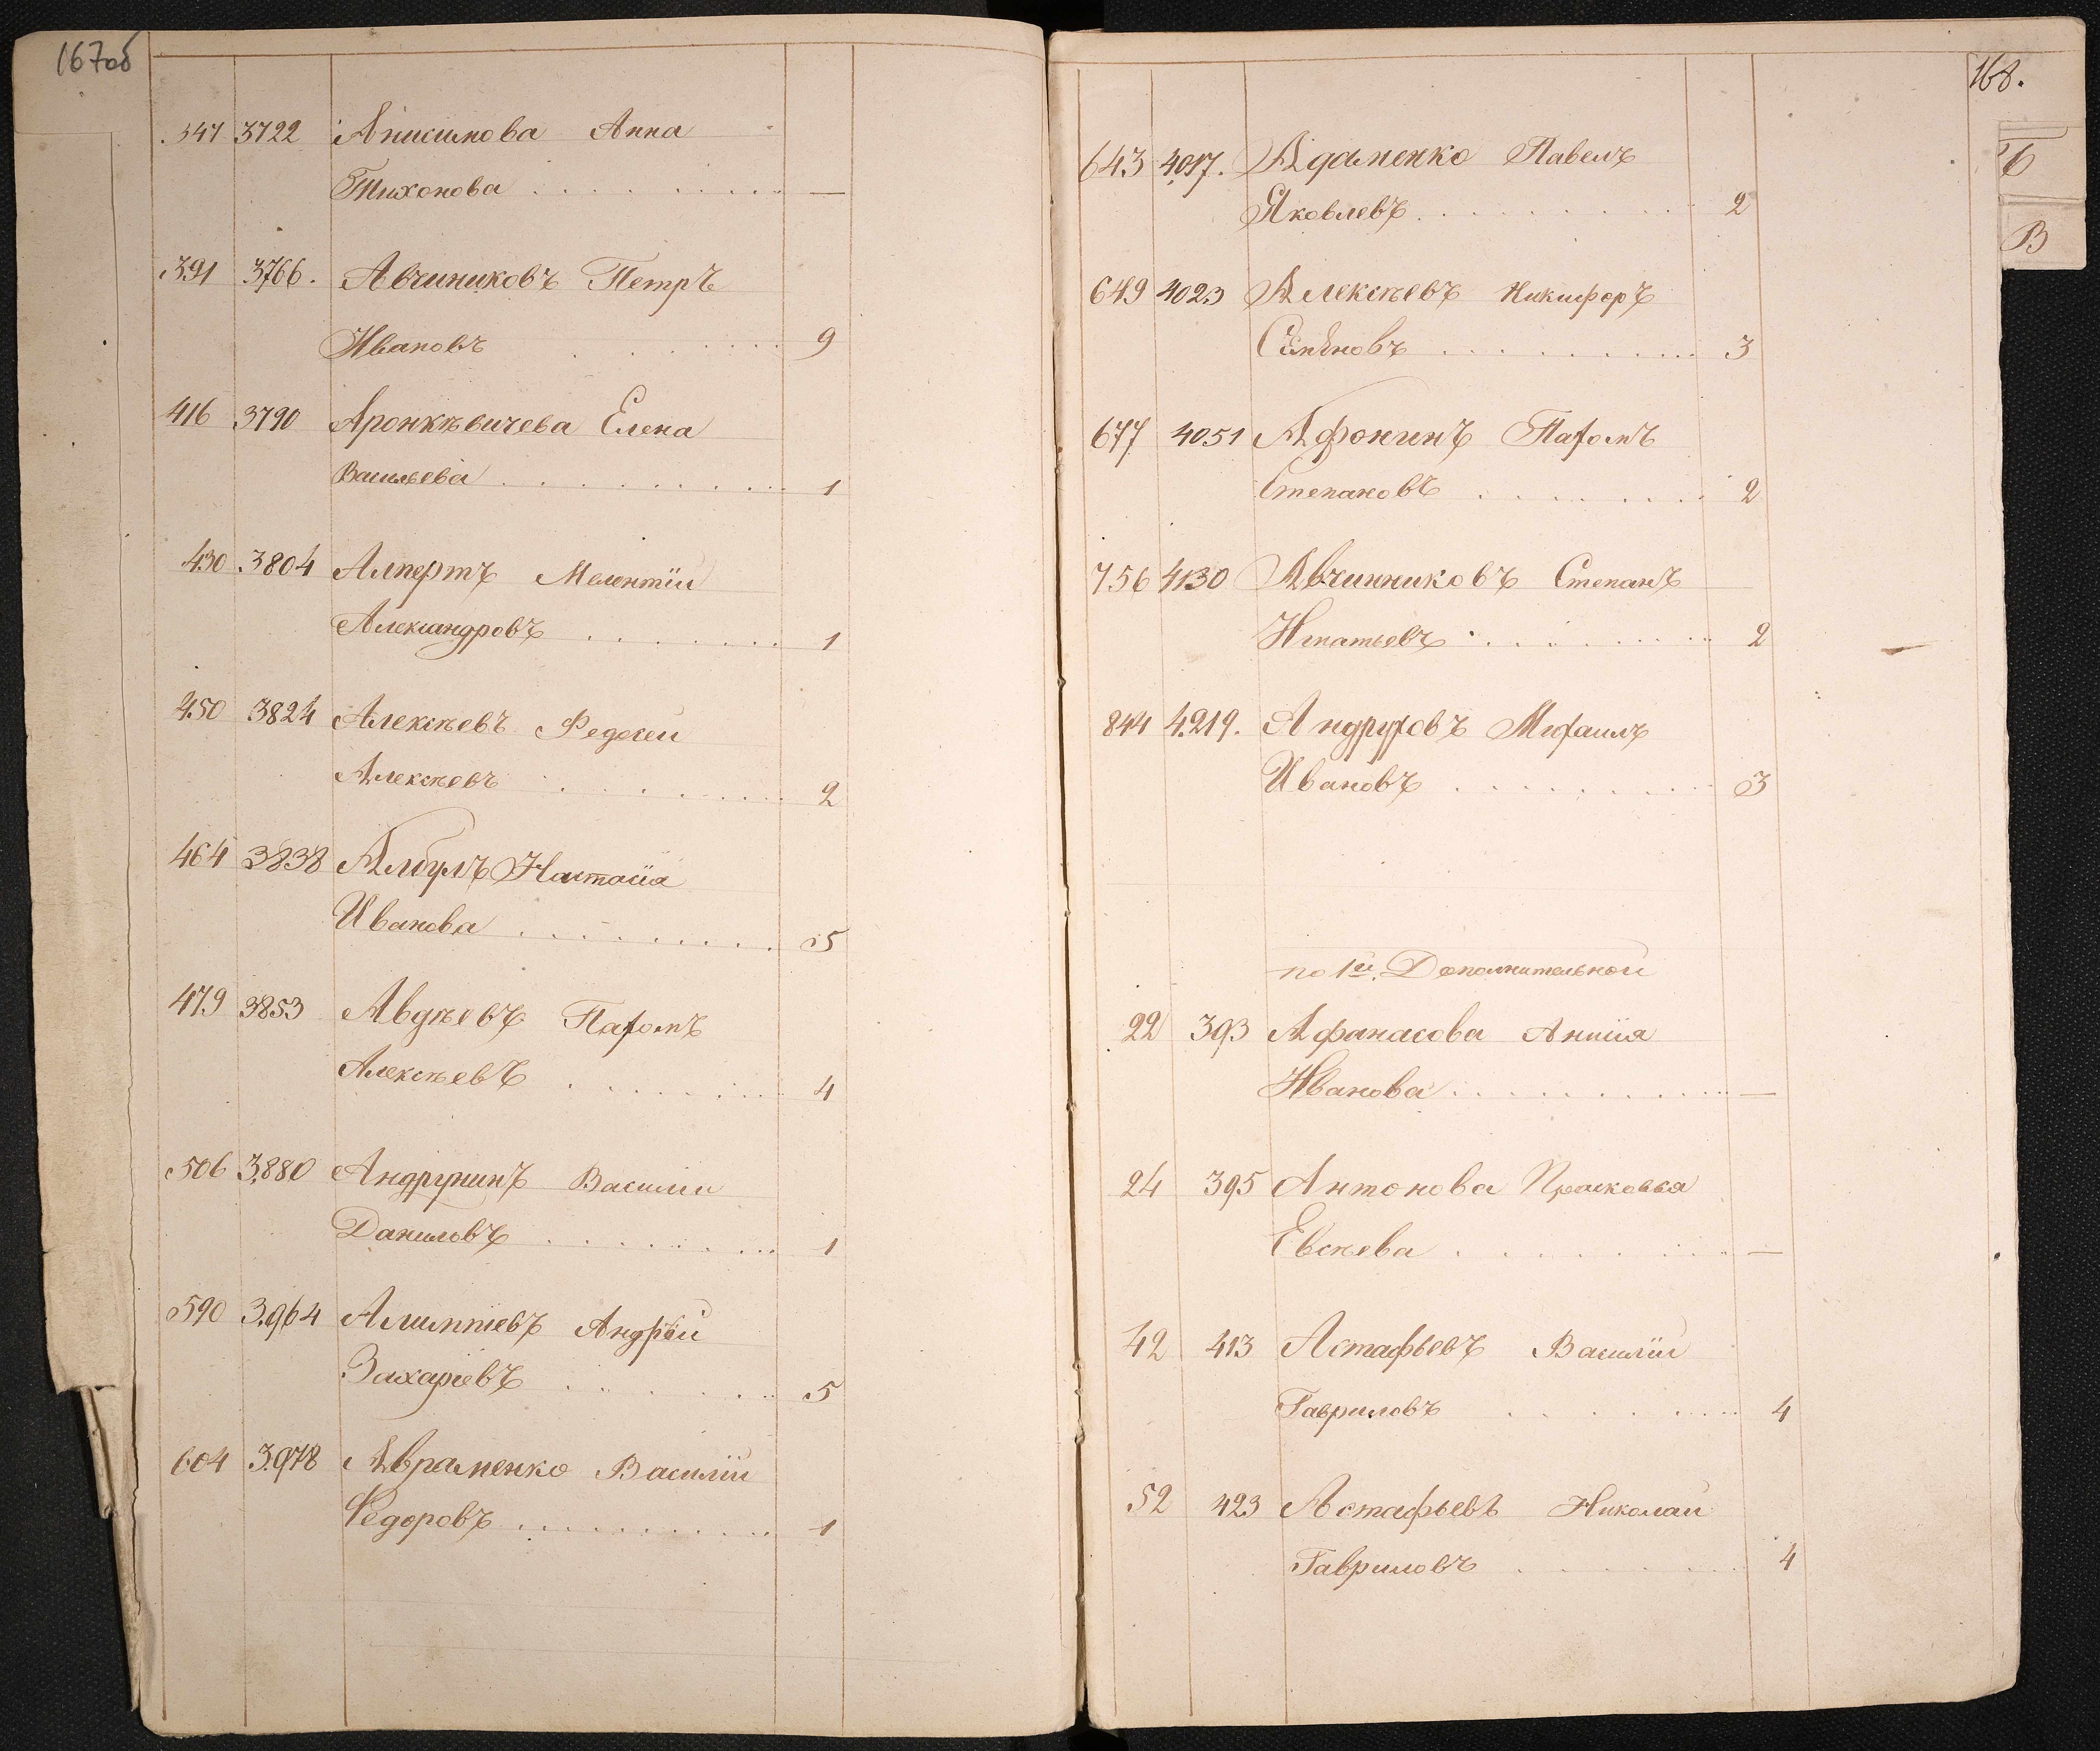 167об
347 3722 Анисимова Анна
Тихонова . . . . . . . . . —
391 3766. Авчиниковъ Петръ
Ивановъ . . . . . . . 9
416 3790 Аронкѣвичева Елена
Васильева . . . . . . . . . . 1
430 3804 Алпертъ Мелентій
Александровъ . . . . . . . 1
450 3824 Алексѣевъ Федосей
Алексѣевъ . . . . . . . . 2
464 3838 Албулъ Настасія
Иванова . . . . . . . . . 5
479 3853 Авдѣевъ Пахомъ
Алексѣевъ . . . . . . . . 4
506 3880 Андрунинъ Василии
Даниловъ . . . . . . . . . 1
590 3964 Алимпіевъ Андрѣй
Захаріевъ . . . . . . . 5
604 3978 Авраменко Василій
Федоровъ . . . . . . . . . . . 1
168.
Б
В
643 4017. Адаменко Павелъ
Яковлевъ . . . . . . . . . . 2
649 4023 Алексѣевъ Никифоръ
Семёновъ . . . . . . . . . . 3
677 4051 Афонинъ Пахомъ
Степановъ . . . . . . . . 2
756 4130 Авчинниковъ Степанъ
Игнатьевъ . . . . . . . . . 2
844 4219. Андруховъ Михаилъ
Ивановъ . . . . . . . . . 3
по 1ой. Дополнительной
22 393 Афанасова Анисія
Иванова . . . . . . . . . . . . —
24 395 Антонова Прасковья
Евсѣева . . . . . . . . . —
42 413 Астафьевъ Василій
Гавриловъ . . . . . . . . 4
52 423 Астафьевъ Николаи
Гавриловъ . . . . . . . 4